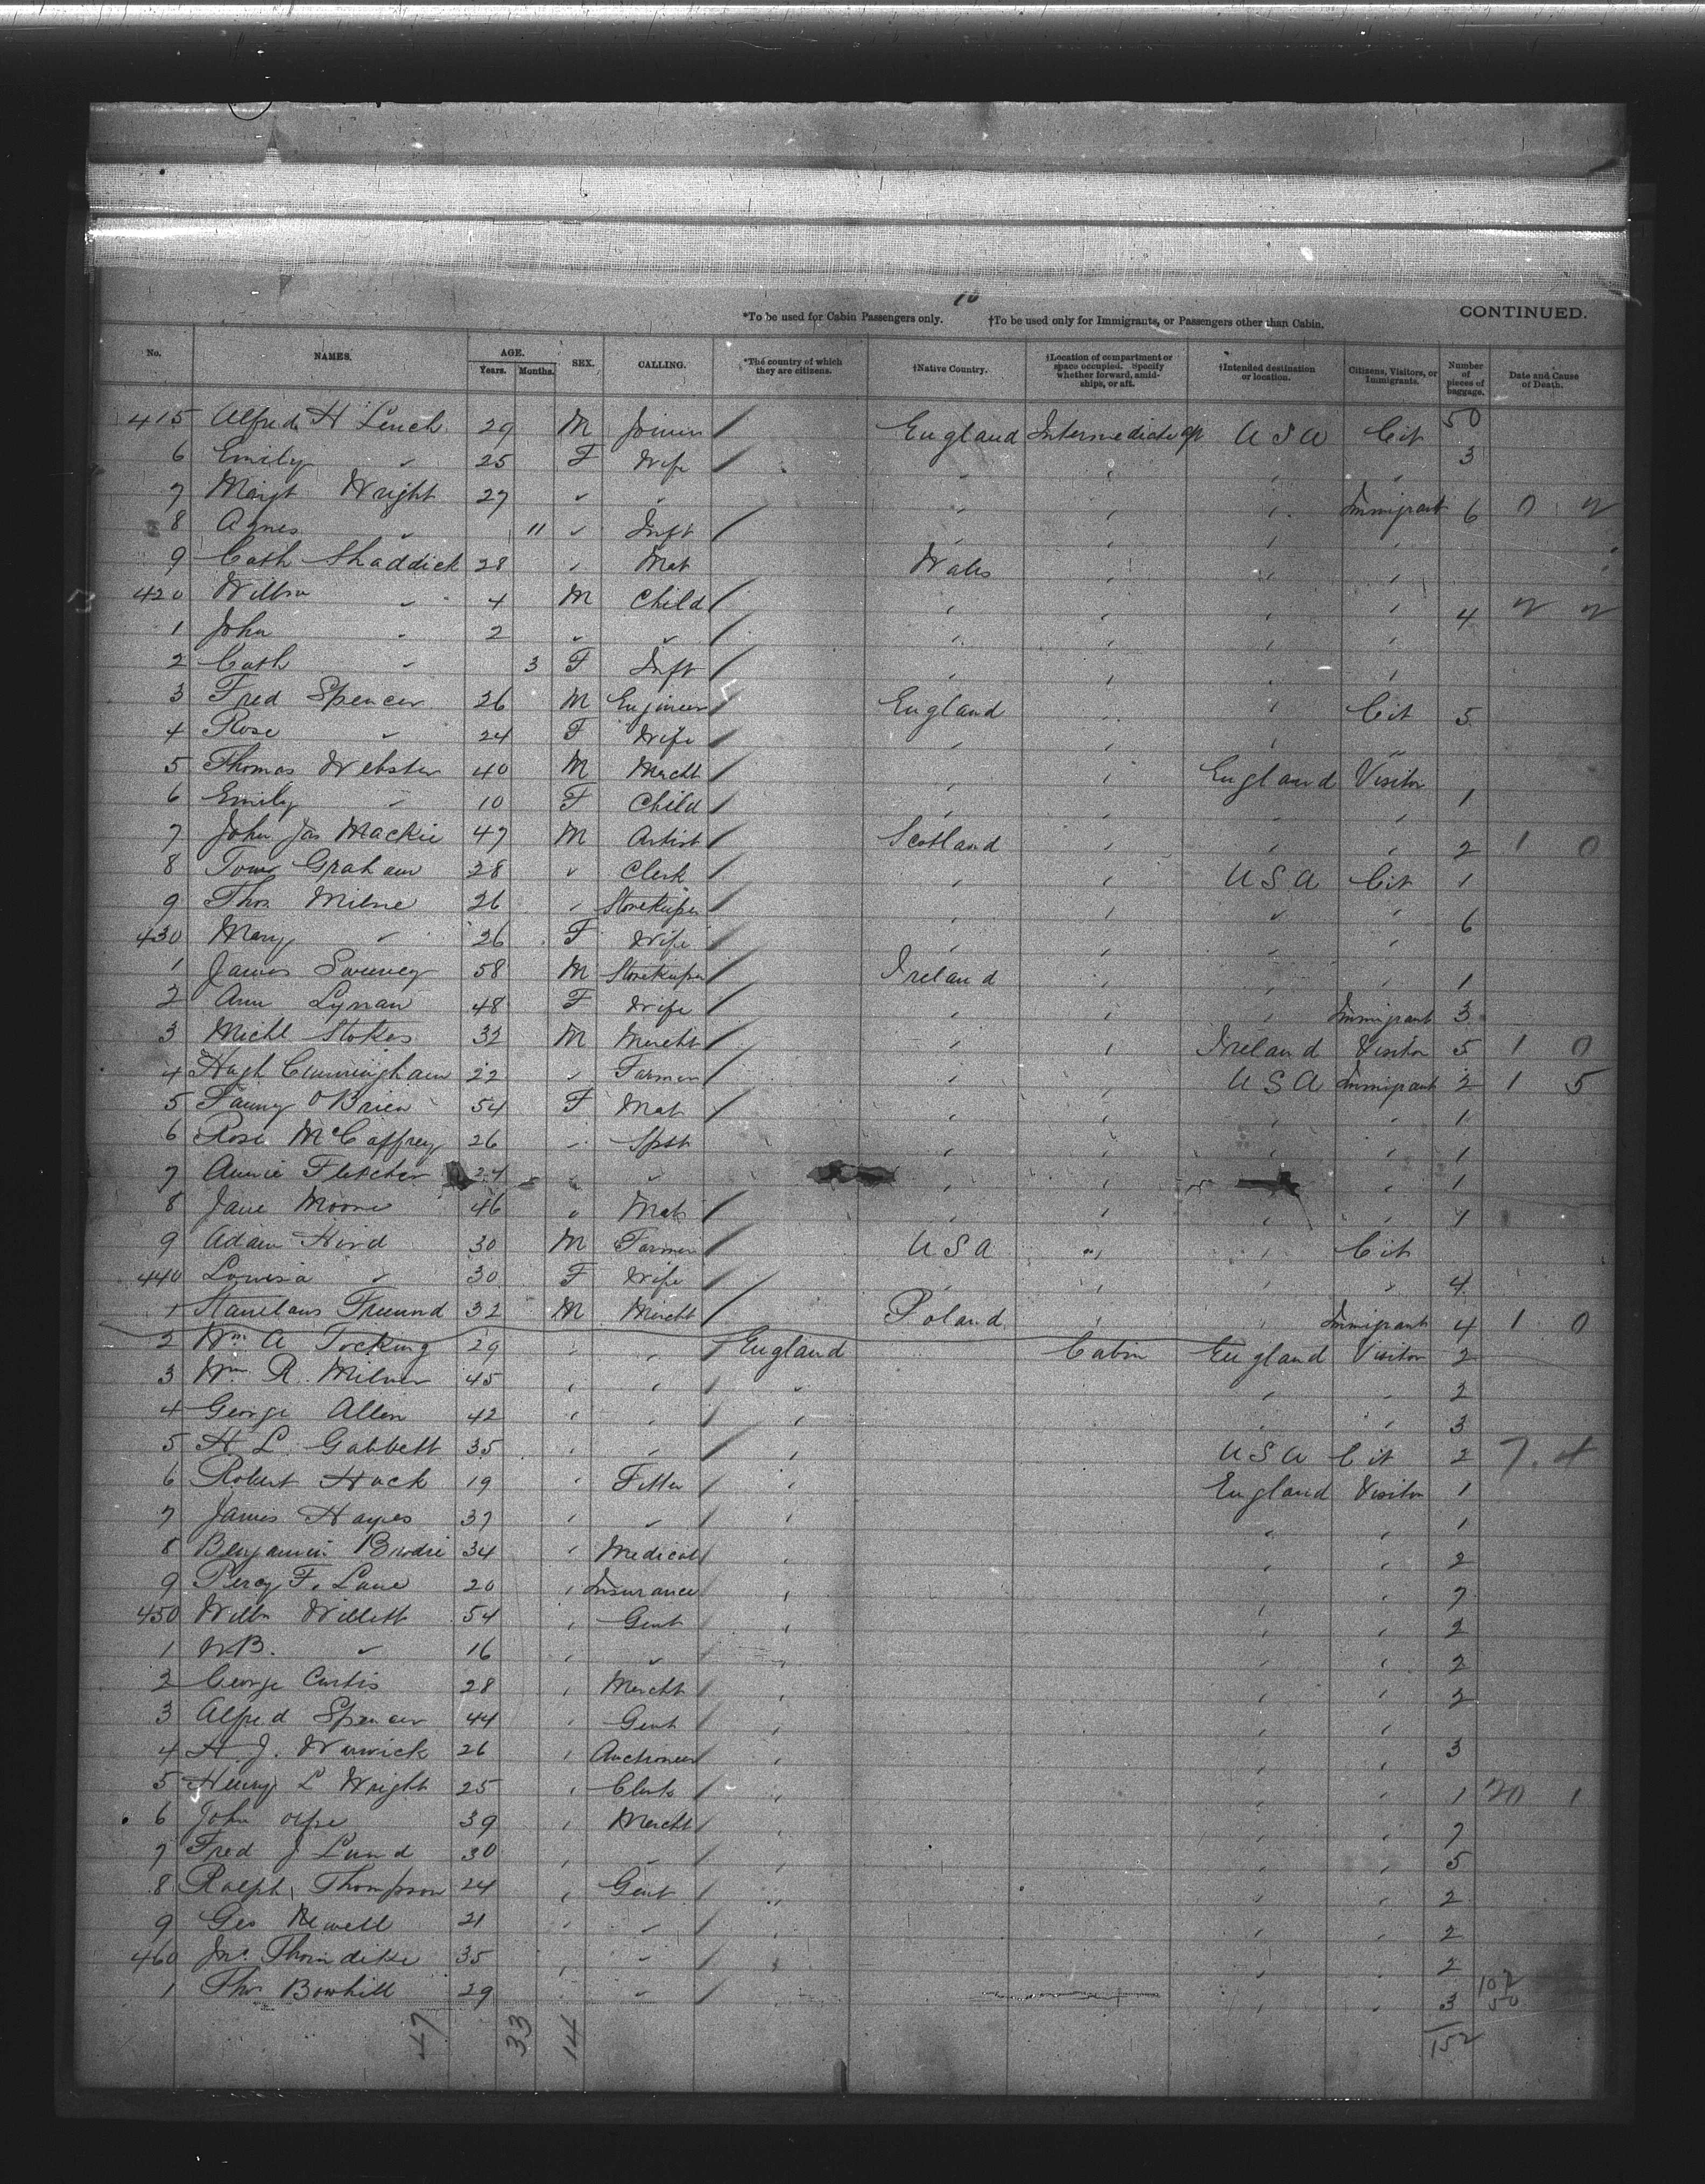 10
*To be used for Cabin Passengers only. †To be used only for Immigrants, or Passengers other than Cabin. CONTINUED.
No. NAMES. AGE. Years. Months. SEX. CALLING. *The country of which they are citizens. †Native Country. †Location of compartment or space occupied. Specify whether forward, amidships, or aft. †Intended destination or location. Citizens, Visitors, or Immigrants. Number of pieces of baggage. Date and Cause of Death.
50
415 Alfred H Leuch 29 M Joiner / England Intermediate aft USA Cit
6 Emily " 25 F Wife / " " " " 3
7 Margt Wright 27 " " " " " Immigrant 6 0 2
8 Agnes " 11 " Inft / " " " "
9 Cath Shaddick 28 " Mat Wales " " "
420 Willm " 4 M Child / " " " " 4 2 2
1 John " 2 " " / " " " "
2 Cath " 3 F Inft / " " " "
3 Fred Spencer 26 M Engineer / England " " Cit 5
4 Rose " 24 F Wife / " " " "
5 Thomas Webster 40 M Mercht / " " England Visitor
6 Emily " 10 F Child / " " " " 1
7 John Jas Mackie 47 M Artist / Scotland " " " 2 1 0
8 Tom Graham 28 " Clerk / " " USA Cit 1
9 Thos Milne 26 " Storekeeper / " " " "
430 Mary " 26 F Wife / " " " " 6
1 James Sweeney 58 M Storekeeper / Ireland " " " 1
2 Ann Lynan 48 F Wife / " " " Immigrant 3
3 Michl Stokes 32 M Mercht / " " Ireland Visitor 5 1 0
4 Hugh Cunningham 22 " Farmer / " " USA Immigrant 2 1 5
5 Fanny O'Brien 54 F Mat / " " " " 1
6 Rose McCaffrey 26 " Spst " " " " 1
7 Annie Fletcher 24 " " " " " " 1
8 Jane Moore 46 " Mat / " " " " 1
9 Adam Hird 30 M Farmer / USA " " Cit
440 Louisa " 30 F Wife / " " " " 4
1 Stanilaus Freund 32 M Mercht / Poland " " Immigrant 4 1 0
2 Wm A Tocking 29 " " / England Cabin England Visitor 2
3 Wm R. Milner 45 " " / " " " 2
4 George Allen 42 " " / " " " 3
5 H L. Gabbett 35 " " / " USA Cit 2 7. 4
6 Robert Hack 19 " Fitter / " England Visitor 1
7 James Hayes 37 " " / " " " 1
8 Benjamin Brodie 34 " Medical / " " " 2
9 Percy F. Lane 20 " Insurance / " " " 7
450 Willm Willett 54 " Gent / " " " 2
1 W.B. " 16 " " / " " " 2
2 George Curtis 28 " Mercht / " " " 2
3 Alfred Spencer 44 " Gent / " " "
4 H. J. Warwick 26 " Auctioneer / " " " 3
5 Henry L Wright 25 " Clerk / " " " 1 20 1
6 John 39 " Mercht / " " " 7
7 Fred J Lund 30 " " / " " " 5
8 Ralph Thompson 24 " Gent / " " " 2
9 Geo Newell 21 " " / " " " 2
460 Jno. Thorndike 35 " " / " " " 2
1 Thos Bowhill 29 " " / " " 3
102
50
152
47 33 14